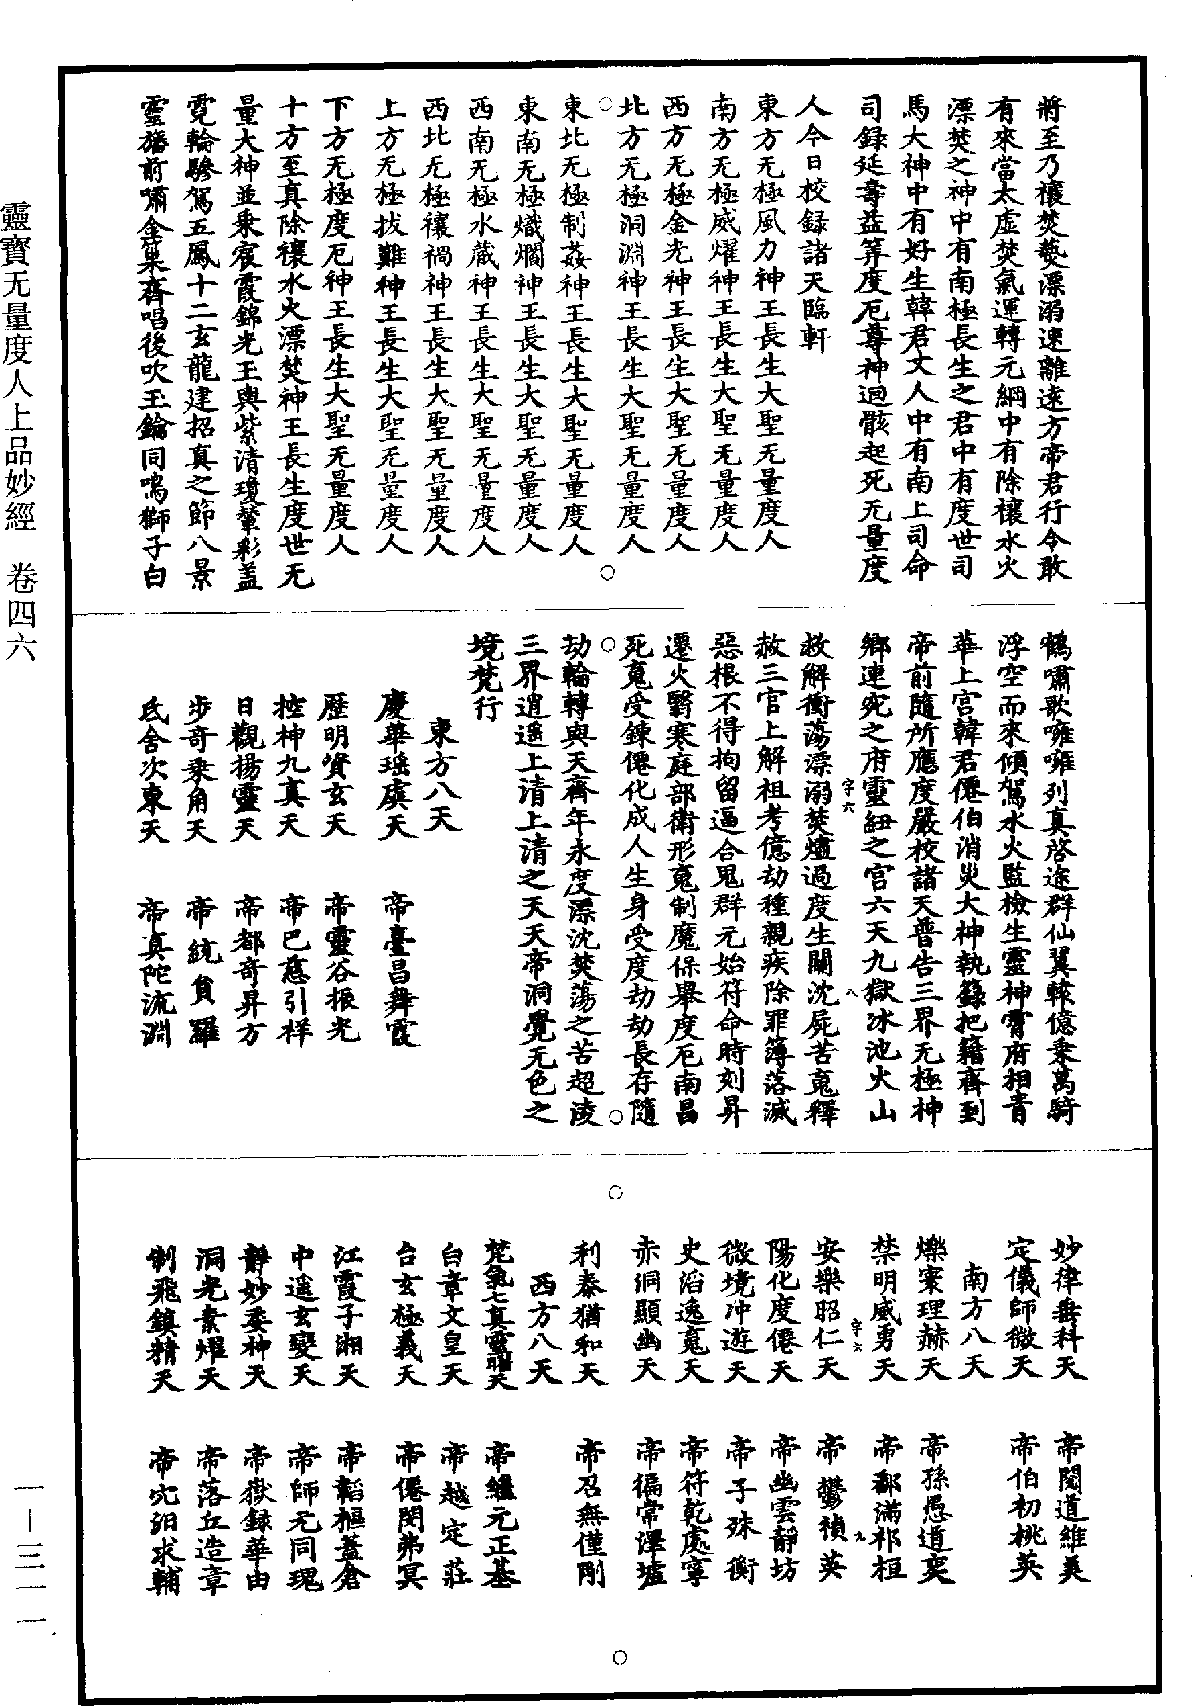 將至乃禳焚爇漂溺速離遠方帝君行令敢
有來當太虛焚氣運轉元綱中有除禳水火
漂焚之神中有南極長生之君中有度世司
馬大神中有好生韓君丈人中有南上司命
司錄延壽益筭度厄尊神迴骸起死无量度
人今日校錄諸天臨軒
東方无極風力神王長生大聖无量度人
南方无極威燿神王長生大聖无量度人
西方无極金光神王長生大聖无量度人
北方无極洞淵神王長生大聖无量度人
東北无極制姦神王長生大聖无量度人
東南无極熾爛神王長生大聖无量度人
西南无極水藏神王長生大聖无量度人
西北无極禳禍神王長生大聖无量度人
上方无極拔難神王長生大聖无量度人
下方无極度厄神王長生大聖无量度人
十方至真除禳水火漂焚神王長生度世无
量大神並乘宸霞錦光王輿紫清瓊輦彩蓋
霓輪驂駕五鳳十二玄龍建招真之節八景
靈旛前嘯金巢齊唱後吹玉鑰同鳴獅子白
鶴嘯歌嗈嗈列真啓途群仙翼轅億乘萬騎
浮空而來傾駕水火監檢生靈神霄府相青
華上宮韓君僊伯消災大神執籙把籍齊到
帝前隨所應度嚴校諸天普告三界无極神
鄉連宛之府靈紐之宮六天九獄冰池火山
救解衝蕩漂溺焚爐過度生關沈屍苦䰟釋
赦三官上解祖考億劫種親疾除罪簿落滅
惡根不得拘留逼合鬼群元始符命時刻昇
遷火翳寒庭部衛形䰟制魔保舉度厄南昌
死䰟受鍊僊化成人生身受度劫劫長存隨
劫輪轉與天齊年永度漂沈焚蕩之苦超淩
三界逍遙上清上清之天天帝洞覺无色之
境梵行
東方八天
慶華瑤虞天 帝臺昌舞霞
歷明資玄天 帝靈谷振光
控神九真天 帝巴慈引祥
日觀揚靈天 帝都奇昇方
步奇乘角天 帝統負羅
氐舍次東天 帝真陀流淵
妙律垂科天 帝閱道維美
定儀師微天 帝伯初桃英
南方八天
爍寨理赫天 帝孫愚道奕
禁明威勇天 帝鄱滿祁桓
安樂昭仁天 帝鬱禎英
陽化度僊天 帝幽雲靜坊
微境冲遊天 帝子殊衡
史滔逸䰟天 帝符乾處寧
赤洞顯幽天 帝徧常澤墟
利泰猶和天 帝召無僅剛
西方八天
梵氣七真靈曜天 帝繼元正基
白章文皇天 帝越定莊
台玄極義天 帝僊閔弗冥
江霞子湘天 帝韜樞蓋倉
中遥玄變天 帝師元同瑰
靜妙委神天 帝獄録華由
洞光素燿天 帝落丘造章
制飛鎮精天 帝宂泪求輔
字六
八
字六
九
靈寶无量度人上品妙經 卷四六
一－三一一